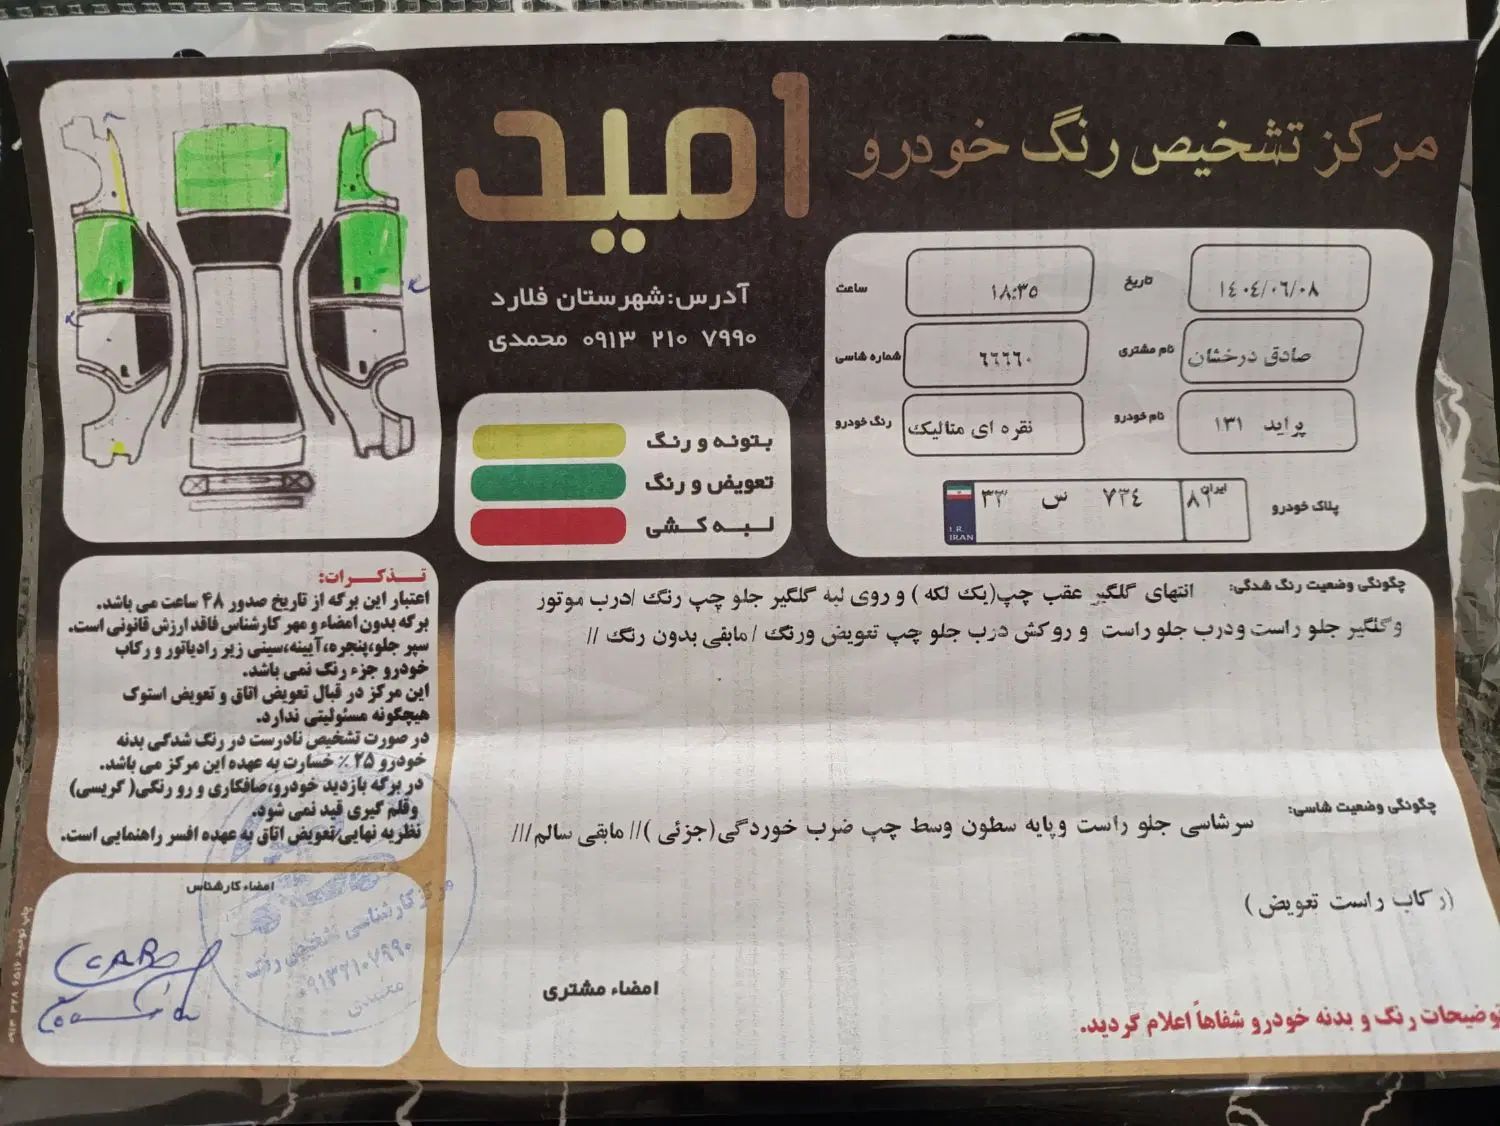 مرکز تشخیص رنگ خودرو
امید
آدرس:شهرستان فلارد
۰۹۱۳ ۲۱۰ ۷۹۹۰ محمدی
تاریخ ۱٤۰٤/۰٦/۰۸
ساعت ۱۸:۳۵
نام مشتری صادق درخشان
شماره شاسی ٦٦٦٦۰
نام خودرو پراید ۱۳۱
رنگ خودرو نقره ای متالیک
پلاک خودرو ایران ۸۱ ۷۳٤ س ۳۳
I.R.
IRAN
بتونه و رنگ
تعویض و رنگ
لبه کشی
چگونگی وضعیت رنگ شدگی: انتهای گلگیر عقب چپ(یک لکه ) و روی لبه گلگیر جلو چپ رنگ /درب موتور
وگلگیر جلو راست ودرب جلو راست و روکش درب جلو چپ تعویض ورنگ / مابقی بدون رنگ //
چگونگی وضعیت شاسی:
سرشاسی جلو راست وپایه سطون وسط چپ ضرب خوردگی(جزئی )// مابقی سالم///
(رکاب راست تعویض )
امضاء مشتری
توضیحات رنگ و بدنه خودرو شفاهاً اعلام گردید.
تذکرات:
اعتبار این برگه از تاریخ صدور ۴۸ ساعت می باشد.
برگه بدون امضاء و مهر کارشناس فاقد ارزش قانونی است.
سپر جلو،پنجره،آیینه،سینی زیر رادیاتور و رکاب
خودرو جزء رنگ نمی باشد.
این مرکز در قبال تعویض اتاق و تعویض استوک
هیچگونه مسئولیتی ندارد.
در صورت تشخیص نادرست در رنگ شدگی بدنه
خودرو ۲۵٪ خسارت به عهده این مرکز می باشد.
در برگه بازدید خودرو،صافکاری و رو رنگی(کریسی)
وقلم گیری قید نمی شود.
نظریه نهایی/تعویض اتاق به عهده افسر راهنمایی است.
امضاء کارشناس
مرکز کارشناسی تشخیص رنگ
۰۹۱۳۲۱۰۷۹۹۰
محمدی
چاپ توحید ۶۵۱۶ ۳۲۸ ۰۹۱۳